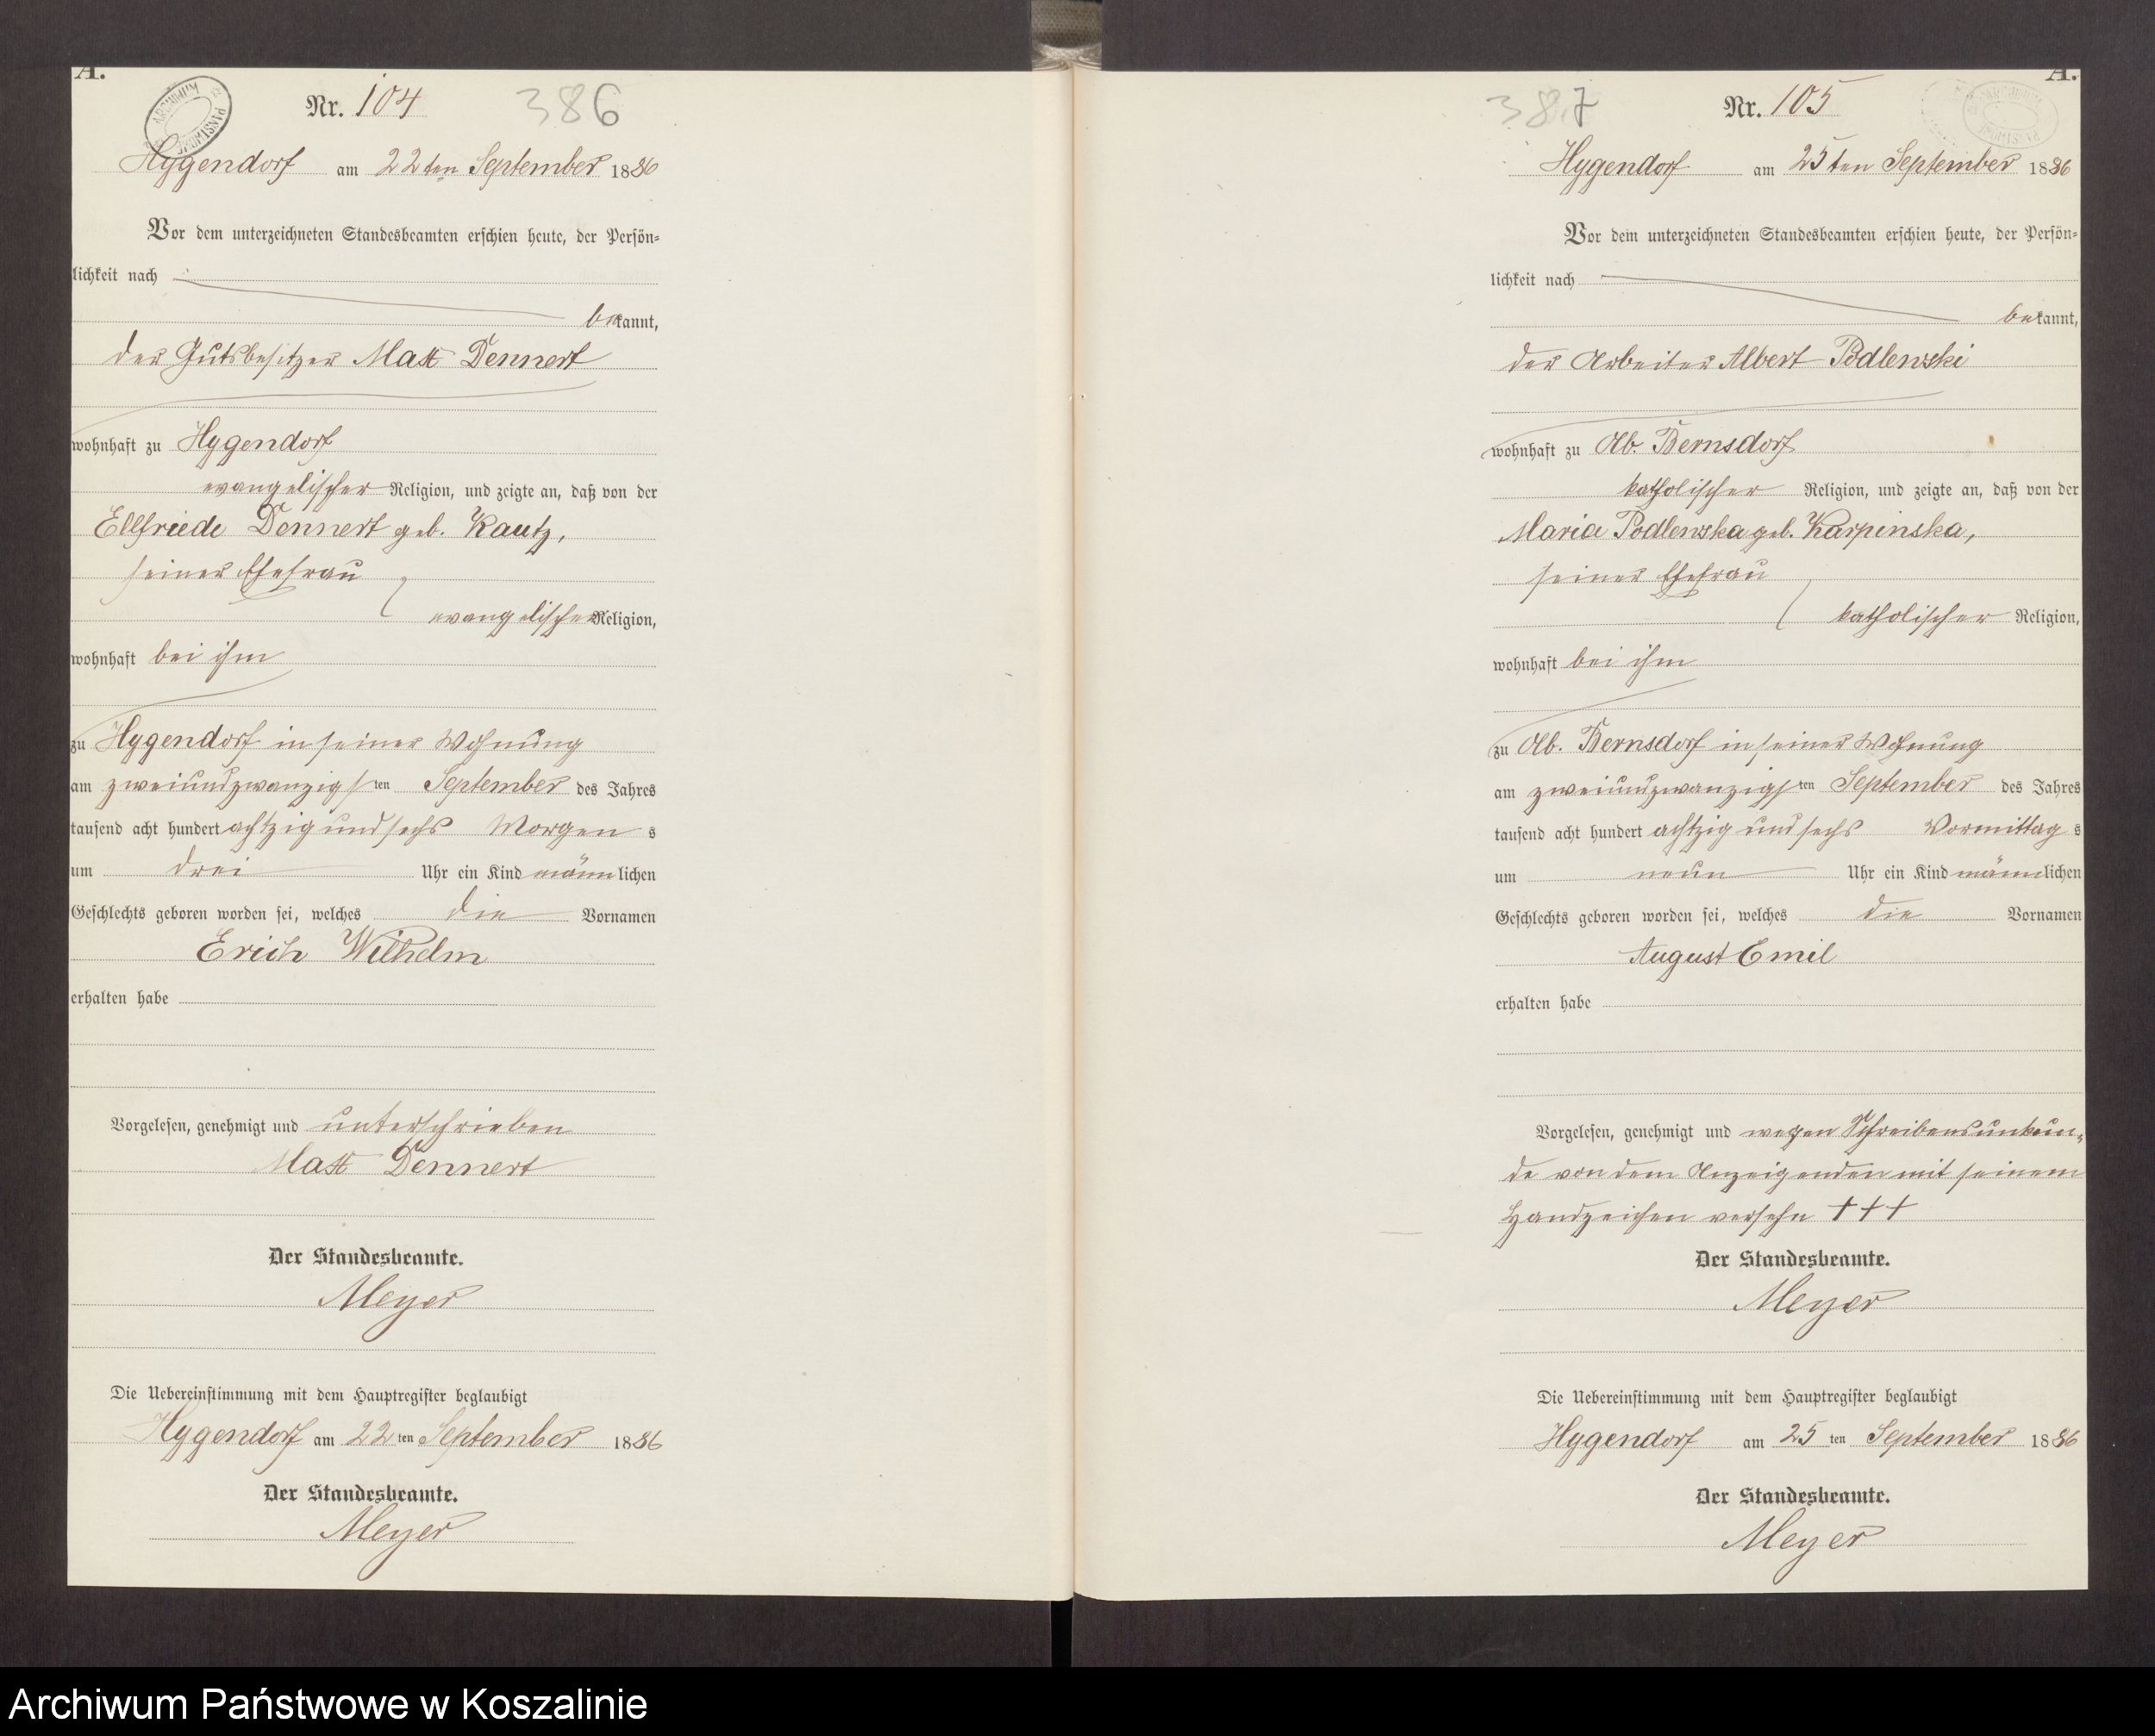 A.
ARCHIWUM PAŃSTWOWE
Nr. 104
386
Hygendorf am 22ten September 1886
Vor dem unterzeichneten Standesbeamten erschien heute, der Persön-
lichkeit nach
bekannt,
der Gutsbesitzer Matt Dennert
wohnhaft zu Hygendorf
evangelischer Religion, und zeigte an, daß von der
Ellfriede Dennert geb. Kautz,
seiner Ehefrau
evangelischer Religion,
wohnhaft bei ihm
zu Hygendorf in seiner Wohnung
am zweiundzwanzigsten September des Jahres
tausend acht hundert achtzig und sechs Morgens
um drei Uhr ein Kind männlichen
Geschlechts geboren worden sei, welches die Vornamen
Erich Wilhelm
erhalten habe
Vorgelesen, genehmigt und unterschrieben
Matt Dennert
Der Standesbeamte.
Meyer
Die Uebereinstimmung mit dem Hauptregister beglaubigt
Hygendorf am 22ten September 1886
Der Standesbeamte.
Meyer
A.
387
Nr. 105
Hygendorf am 25ten September 1886
Vor dem unterzeichneten Standesbeamten erschien heute, der Persön-
lichkeit nach
bekannt,
der Arbeiter Albert Podlewski
wohnhaft zu Ab. Bernsdorf
katholischer Religion, und zeigte an, daß von der
Maria Podlewska geb. Karpinska,
seiner Ehefrau
katholischer Religion,
wohnhaft bei ihm
zu Ab. Bernsdorf in seiner Wohnung
am zweiundzwanzigsten September des Jahres
tausend acht hundert achtzig und sechs Vormittags
um neun Uhr ein Kind männlichen
Geschlechts geboren worden sei, welches die Vornamen
August Emil
erhalten habe
Vorgelesen, genehmigt und wegen Schreibensunkun-
de von dem Anzeigenden mit seinem
Handzeichen versehn +++
Der Standesbeamte.
Meyer
Die Uebereinstimmung mit dem Hauptregister beglaubigt
Hygendorf am 25ten September 1886
Der Standesbeamte.
Meyer
Archiwum Państwowe w Koszalinie